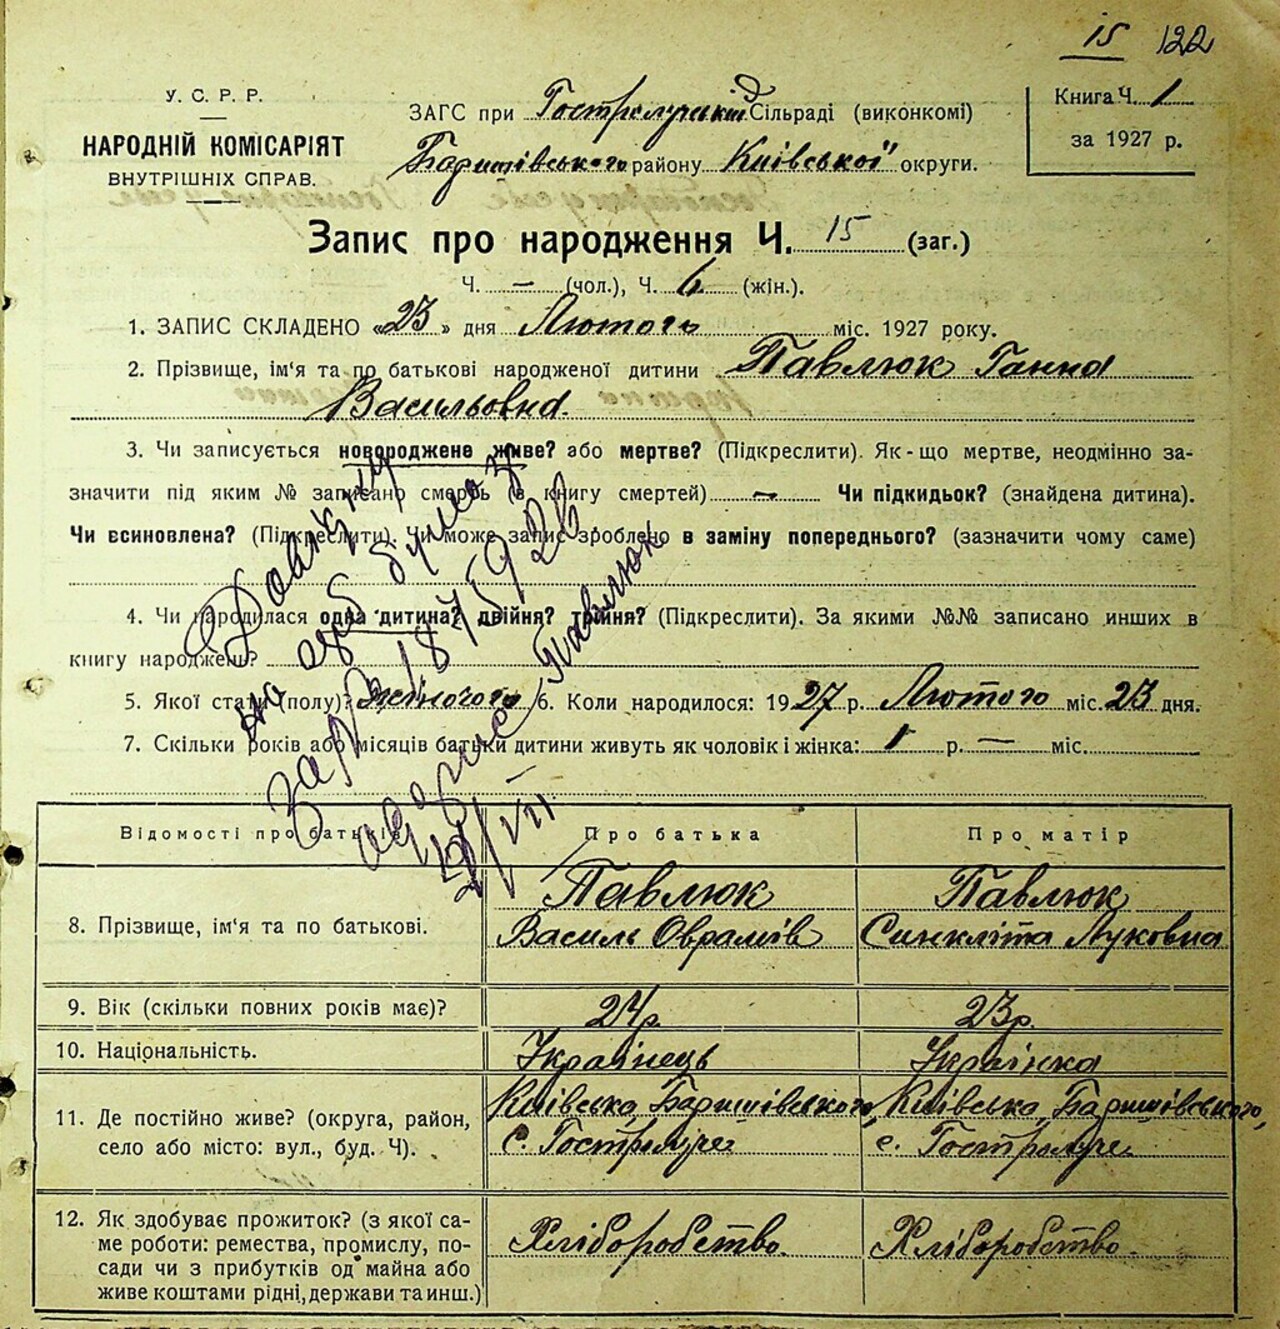 15 122
У. С. Р. Р.
НАРОДНІЙ КОМІСАРІЯТ
ВНУТРІШНІХ СПРАВ.
ЗАГС при Гостролуцькій Сільраді (виконкомі)
Баришівського району Київської округи.
Книга Ч. 1
за 1927 р.
Запис про народження Ч. 15 (заг.)
Ч. — (чол.), Ч. 6 (жін.).
1. ЗАПИС СКЛАДЕНО «23» дня Лютого міс. 1927 року.
2. Прізвище, ім'я та по батькові народженої дитини Павлюк Ганна
Васильовна.
3. Чи записується новороджене живе? або мертве? (Підкреслити). Як-що мертве, неодмінно за-
значити під яким № записано смерть (в книгу смертей) — Чи підкидьок? (знайдена дитина).
Чи всиновлена? (Підкреслити). Чи може запис зроблено в заміну попереднього? (зазначити чому саме)
4. Чи народилася одна дитина? двійня? трійня? (Підкреслити). За якими №№ записано инших в
книгу народжень?
5. Якої стати (полу)? жіночого 6. Коли народилося: 1927 р. Лютого міс. 23 дня.
7. Скільки років або місяців батьки дитини живуть як чоловік і жінка: 1 р. — міс.
Павлюк
Відомості про батьків Про батька Про матір
8. Прізвище, ім'я та по батькові. Павлюк Василь Оврамів Павлюк Синкліта Луковна
9. Вік (скільки повних років має)? 24 р. 23 р.
10. Національність. Українець Українка
11. Де постійно живе? (округа, район,
село або місто: вул., буд. Ч). Київська, Баришівського, с. Гостролуче Київська, Баришівського, с. Гостролуче
12. Як здобуває прожиток? (з якої са-
ме роботи: ремества, промислу, по-
сади чи з прибутків од майна або
живе коштами рідні, держави та инш.) Хліборобство. Хліборобство.